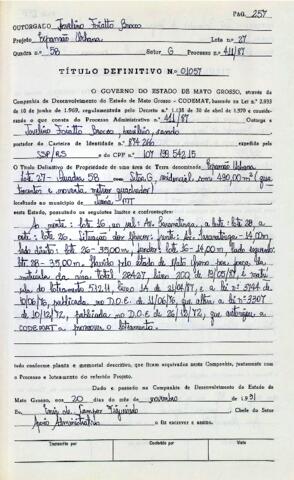 PAG. 257
OUTORGADO Jovelino Foiatto Brocco
Projeto Expansão Urbana Lote n.o 27
Quadra n.o 58 Setor G Processo n.o 411/87
TÍTULO DEFINITIVO N.o 01057
O GOVERNO DO ESTADO DE MATO GROSSO, através da
Companhia de Desenvolvimento do Estado de Mato Grosso - CODEMAT, baseado na Lei n.o 2.933
de 10 de junho de 1969, regulamentada pelo Decreto n.o 1.138 de 30 de abril de 1970 e considerando
o que consta do Processo Administrativo n.o 411/87 Outorga a
Jovelino Foiatto Brocco, brasileiro, casado
portador da Carteira de Identidade n.o 874.266 expedida pela
SSP/RS e do CPF n.o 107 199 542.15
O Título Definitivo de Propriedade de uma área de Terra denominada Expansão Urbana
Lote 27 - Quadra 58 Setor G, residencial com 490,00m² (que
trocentos e noventa metros quadrados)
localizado no município de MT
neste Estado, possuindo os seguintes limites e confrontações:
Ao norte: lote 16 ao sul: Av. a leste: lote 28 a
oeste: lote: 26. Situação dos - 14,00m
lado direito: lote 26 - 35,00m, fundos: lote 16 - 14,00m lado esquerdo:
lote 28 - 35,00m. Havido pelo Estado de Mato Grosso por força da
matrícula da área total: 28427, livro 200 de 13/05/87, e matrí
cula do loteamento 57211 Livro 3A de 21/04/87, e a lei nº 3744 de
10/06/76, publicada no D.O.E de 11/06/76, que altera a lei nº 3307
de 18/12/72, publicada no D.O.E de 26/12/72, que autorizou a
CODEMAT a promover o loteamento.
tudo conforme planta e memorial descritivo, que ficam arquivados nesta Companhia, juntamente com
o Processo e loteamento do referido Projeto.
Dado e passado na Companhia de Desenvolvimento do Estado de
Mato Grosso, aos 20 dias do mês de novembro de 1991
Eu, de Campos Figueiredo Chefe do Setor
Apoio Administrativo o fiz escrever e assino.
Transcrito por Conferido por Visto